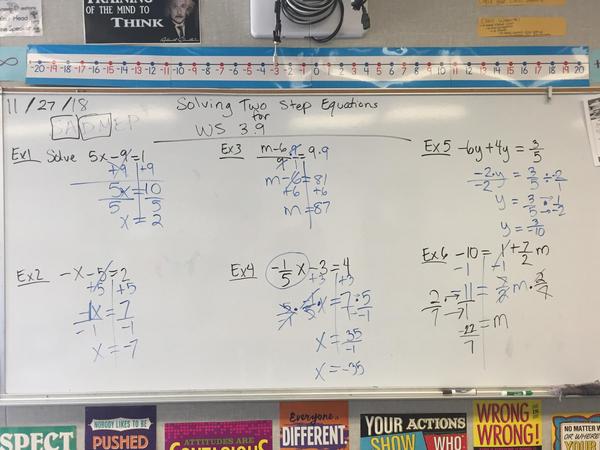 TRAINING
OF THE MIND TO
THINK
-20 -19 -18 -17 -16 -15 -14 -13 -12 -11 -10 -9 -8 -7 -6 -5 -4 -3 -2 -1 0 1 2 3 4 5 6 7 8 9 10 11 12 13 14 15 16 17 18 19 20
11/27/18
Solving Two Step Equations
for
WS 3.9
SADMEP
Ex1 Solve 5x-9=1
+9 +9
5x = 10
5 5
x = 2
Ex2 -x-5=2
+5 +5
-1x = 7
-1 -1
x = -7
Ex3 m-6/9 · 9/1 = 9·9
m-6 = 81
+6 +6
m = 87
Ex4 -1/5 x -3 = 4
+3 +3
5/-1 · -1/5 x = 7·5/-1
x = 35/-1
x = -35
Ex5 -6y+4y = 3/5
-2·y/-2 = 3/5 ÷ -2/1
y = 3/5 · 1/-2
y = -3/10
Ex6 -10 = 1 + 7/2 m
-1 -1
2/7 · -11/1 = 7/2 m · 2/7
-22/7 = m
SPECT
NOBODY LIKES TO BE
PUSHED
ATTITUDES ARE
CONTAGIOUS
Everyone
DIFFERENT.
YOUR ACTIONS
SHOW WHO
WRONG IS
WRONG!
NO MATTER W
OR WHERE
YOUR